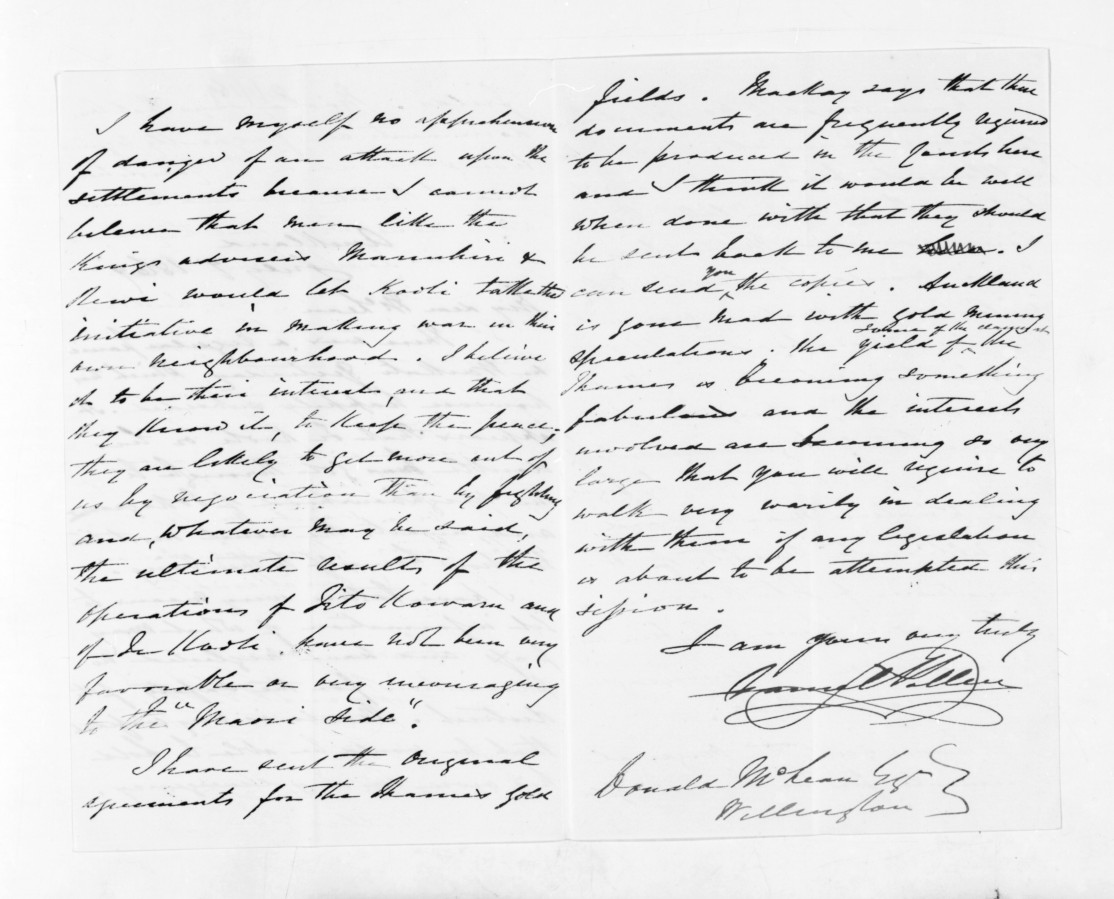 I have myself no apprehension
of danger of an attack upon the
settlements because I cannot
believe that men like the
Kings advisers Manuhiri &
Rewi would let Kooti take the
initiative in making war in their
own neighbourhood. I believe
it to be their interest, and that
they know it, to keep the peace;
they are likely to get more out of
us by negociation than by fighting
and, whatever may be said,
the ultimate results of the
operations of Tito Kowaru and
of Te Kooti have not been very
favorable or very encouraging
to the "Maori side".
I have sent the original
agreements for the Thames gold
fields. Mackay says that these
documents are frequently required
to be produced in the Courts here
and I think it would be well
when done with that they should
be sent back to me. I
can send you the copies. Auckland
is gone mad with gold mining
speculations. The yield of some of the claims at the
Thames is becoming something
fabulous and the interests
involved are becoming so very
large that you will require to
walk very warily in dealing
with them if any legislation
is about to be attempted this
session.
I am yours very truly
Daniel Pollen
Donald McLean Esqr
Wellington